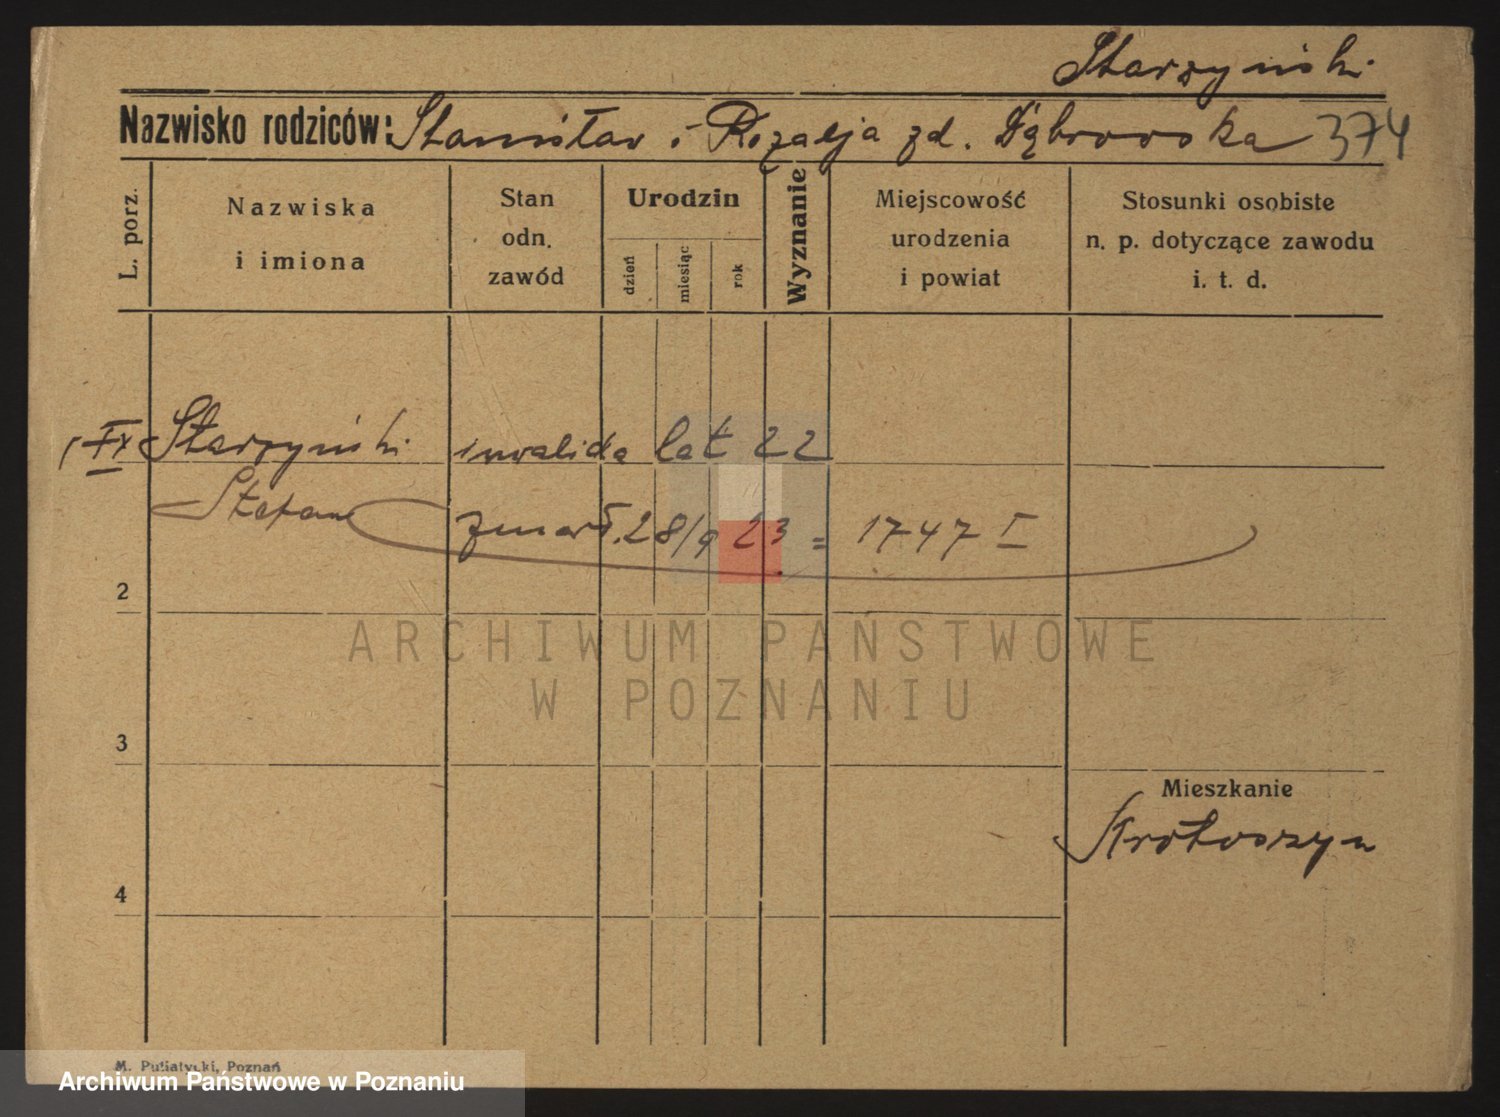 Starzyński
Nazwisko rodziców: Stanisław i Rozalja zd. Dąbrowska 374
L. porz.
Nazwiska
i imiona
Stan
odn.
zawód
Urodzin
dzień
miesiąc
rok
Wyznanie
Miejscowość
urodzenia
i powiat
Stosunki osobiste
n. p. dotyczące zawodu
i. t. d.
Starzyński inwalida lat 22
Stefan zmarł. 28/9 23 = 1747 I
2
ARCHIWUM PAŃSTWOWE
W POZNANIU
3
Mieszkanie
Krotoszyn
4
M. Putiatycki, Poznań
Archiwum Państwowe w Poznaniu